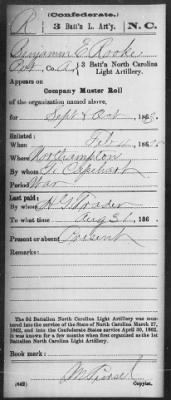 (Confederate.)
R 3 Bat'n L. Art'y. N.C.
Benjamin E. Rooke
Pvt Co. A, 3 Batt'n North Carolina
Light Artillery.
Appears on
Company Muster Roll
of the organization named above,
for Sept & Oct , 186
Enlisted:
When Feb , 186
Where Northampton
By whom Capehart
Period War
Last paid:
By whom H. G. Trader
To what time Aug 31 , 186
Present or absent Present
Remarks:
The 3d Battalion North Carolina Light Artillery was mus-
tered into the service of the State of North Carolina March 27,
1862, and into the Confederate States service April 30, 1862.
It was known for a few months when first organized as the 1st
Battalion North Carolina Light Artillery.
Book mark:
(642)
Copyist.